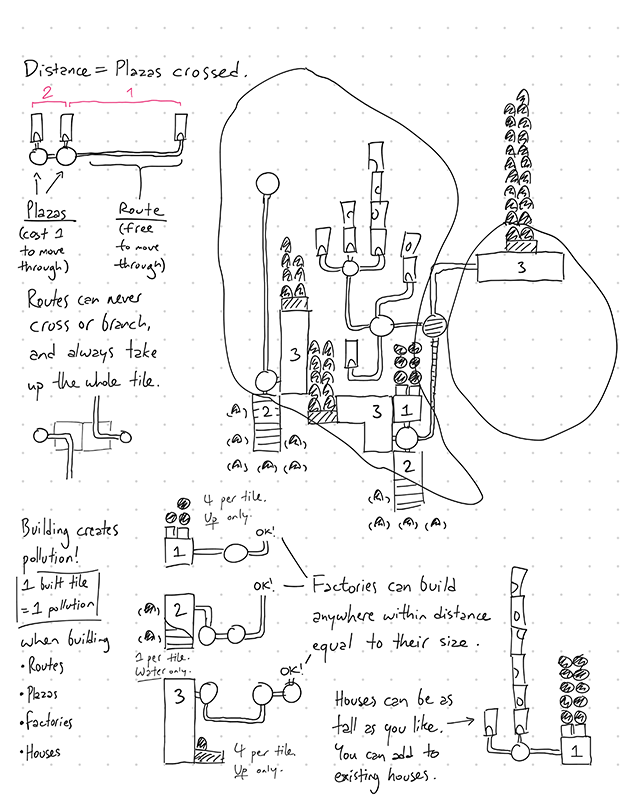 Distance = Plazas crossed.
2
1
Plazas
(cost 1
to move
through)
Route
(free
to move
through)
Routes can never
cross or branch,
and always take
up the whole tile.
3
3
2
3
1
2
Building creates
pollution!
1 built tile
= 1 pollution
when building
• Routes
• Plazas
• Factories
• Houses
4 per tile.
Up only.
1
OK!
2
OK!
1 per tile.
Water only.
3
OK!
4 per tile
Up only.
Factories can build
anywhere within distance
equal to their size.
Houses can be as
tall as you like.
You can add to
existing houses.
1